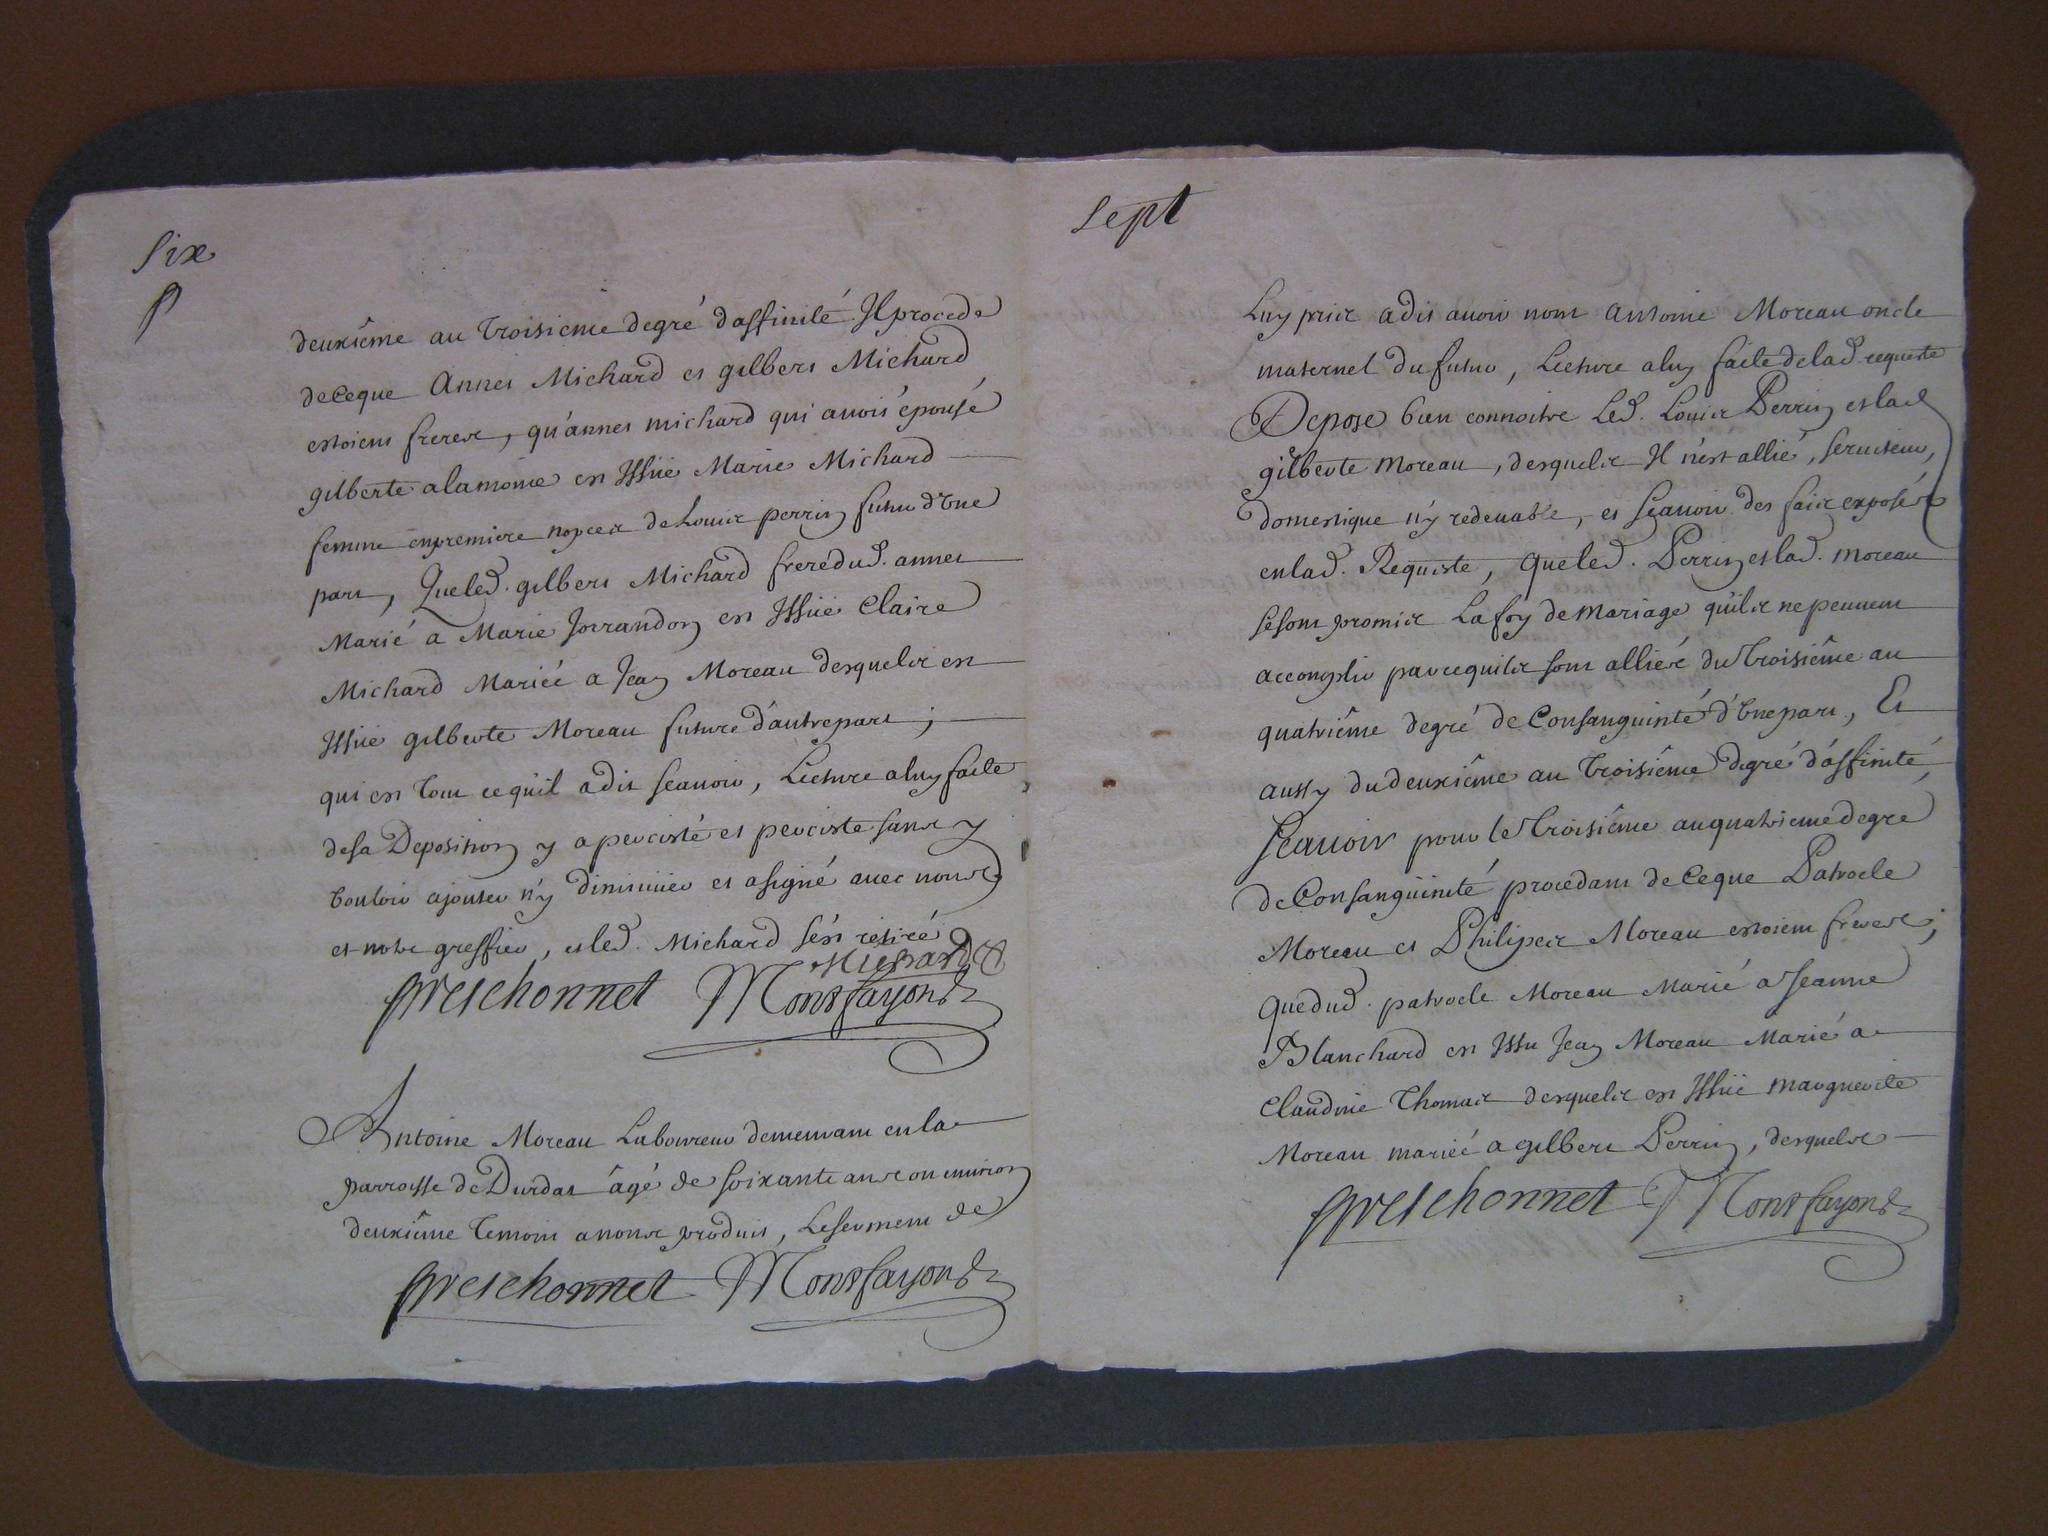 Six
deuxiême au troisieme degré d'affinité Il procede
de ceque Annet Michard et gilbert Michard
estoient freres, qu'annet michard qui avoit épousé
gilberte alamoine est Issuë Marie Michard
femme en premiere nopces de Louis perrin futur d'une
part, Queled. gilbert Michard frere dud. annet
Marié a Marie Jorrandon est Issuë Claire
Michard Mariée a Jean Moreau desquels est
Issuë gilberte Moreau future d'autre part ;
qui est tout ce quil a dit scavoir, Lecture a luy faite
de sa Deposition y a percisté et perciste sans y
vouloir ajouter n'y diminüer et a signé avec nous
et notre greffier, et led. Michard s'est retiré
Michard
preschonnet Montfayon
Antoine Moreau Laboureur demeurant en la
parroisse de Durdat âgé de soixante ans ou environ
deuxiême temoin a nous produit, Le serment de
preschonnet Montfayon
Sept
Luy pris a dit avoir nom antoine Moreau oncle
maternel du futur, Lecture a luy faite de lad. requeste
Depose bien connoitre Led. Louis Perrin et lad
gilberte Moreau, desquels Il n'est allié, serviteur,
domestique n'y redevable, et sçavoir des faits exposés
en lad. Requiste, que led. Perrin et lad. moreau
se sont promis La foy de mariage qu'ils ne peuvent
accomplir parcequils sont alliés du troisiême au
quatriême degré de Consanguinté d'une part, Et
aussy du deuxiême au troisiême degré d'affinité,
Scavoir pour le troisiême au quatrieme degré
de Consangüinité procedant de ceque Patrocle
Moreau et Philipes Moreau estoient freres ;
que dud. patrocle Moreau Marié a Jeanne
Blanchard est Issu Jean Moreau Marié a
Claudine Thomas desquels est Issuë marguerite
Moreau mariée a gilbert Perrin, desquels
preschonnet Montfayon